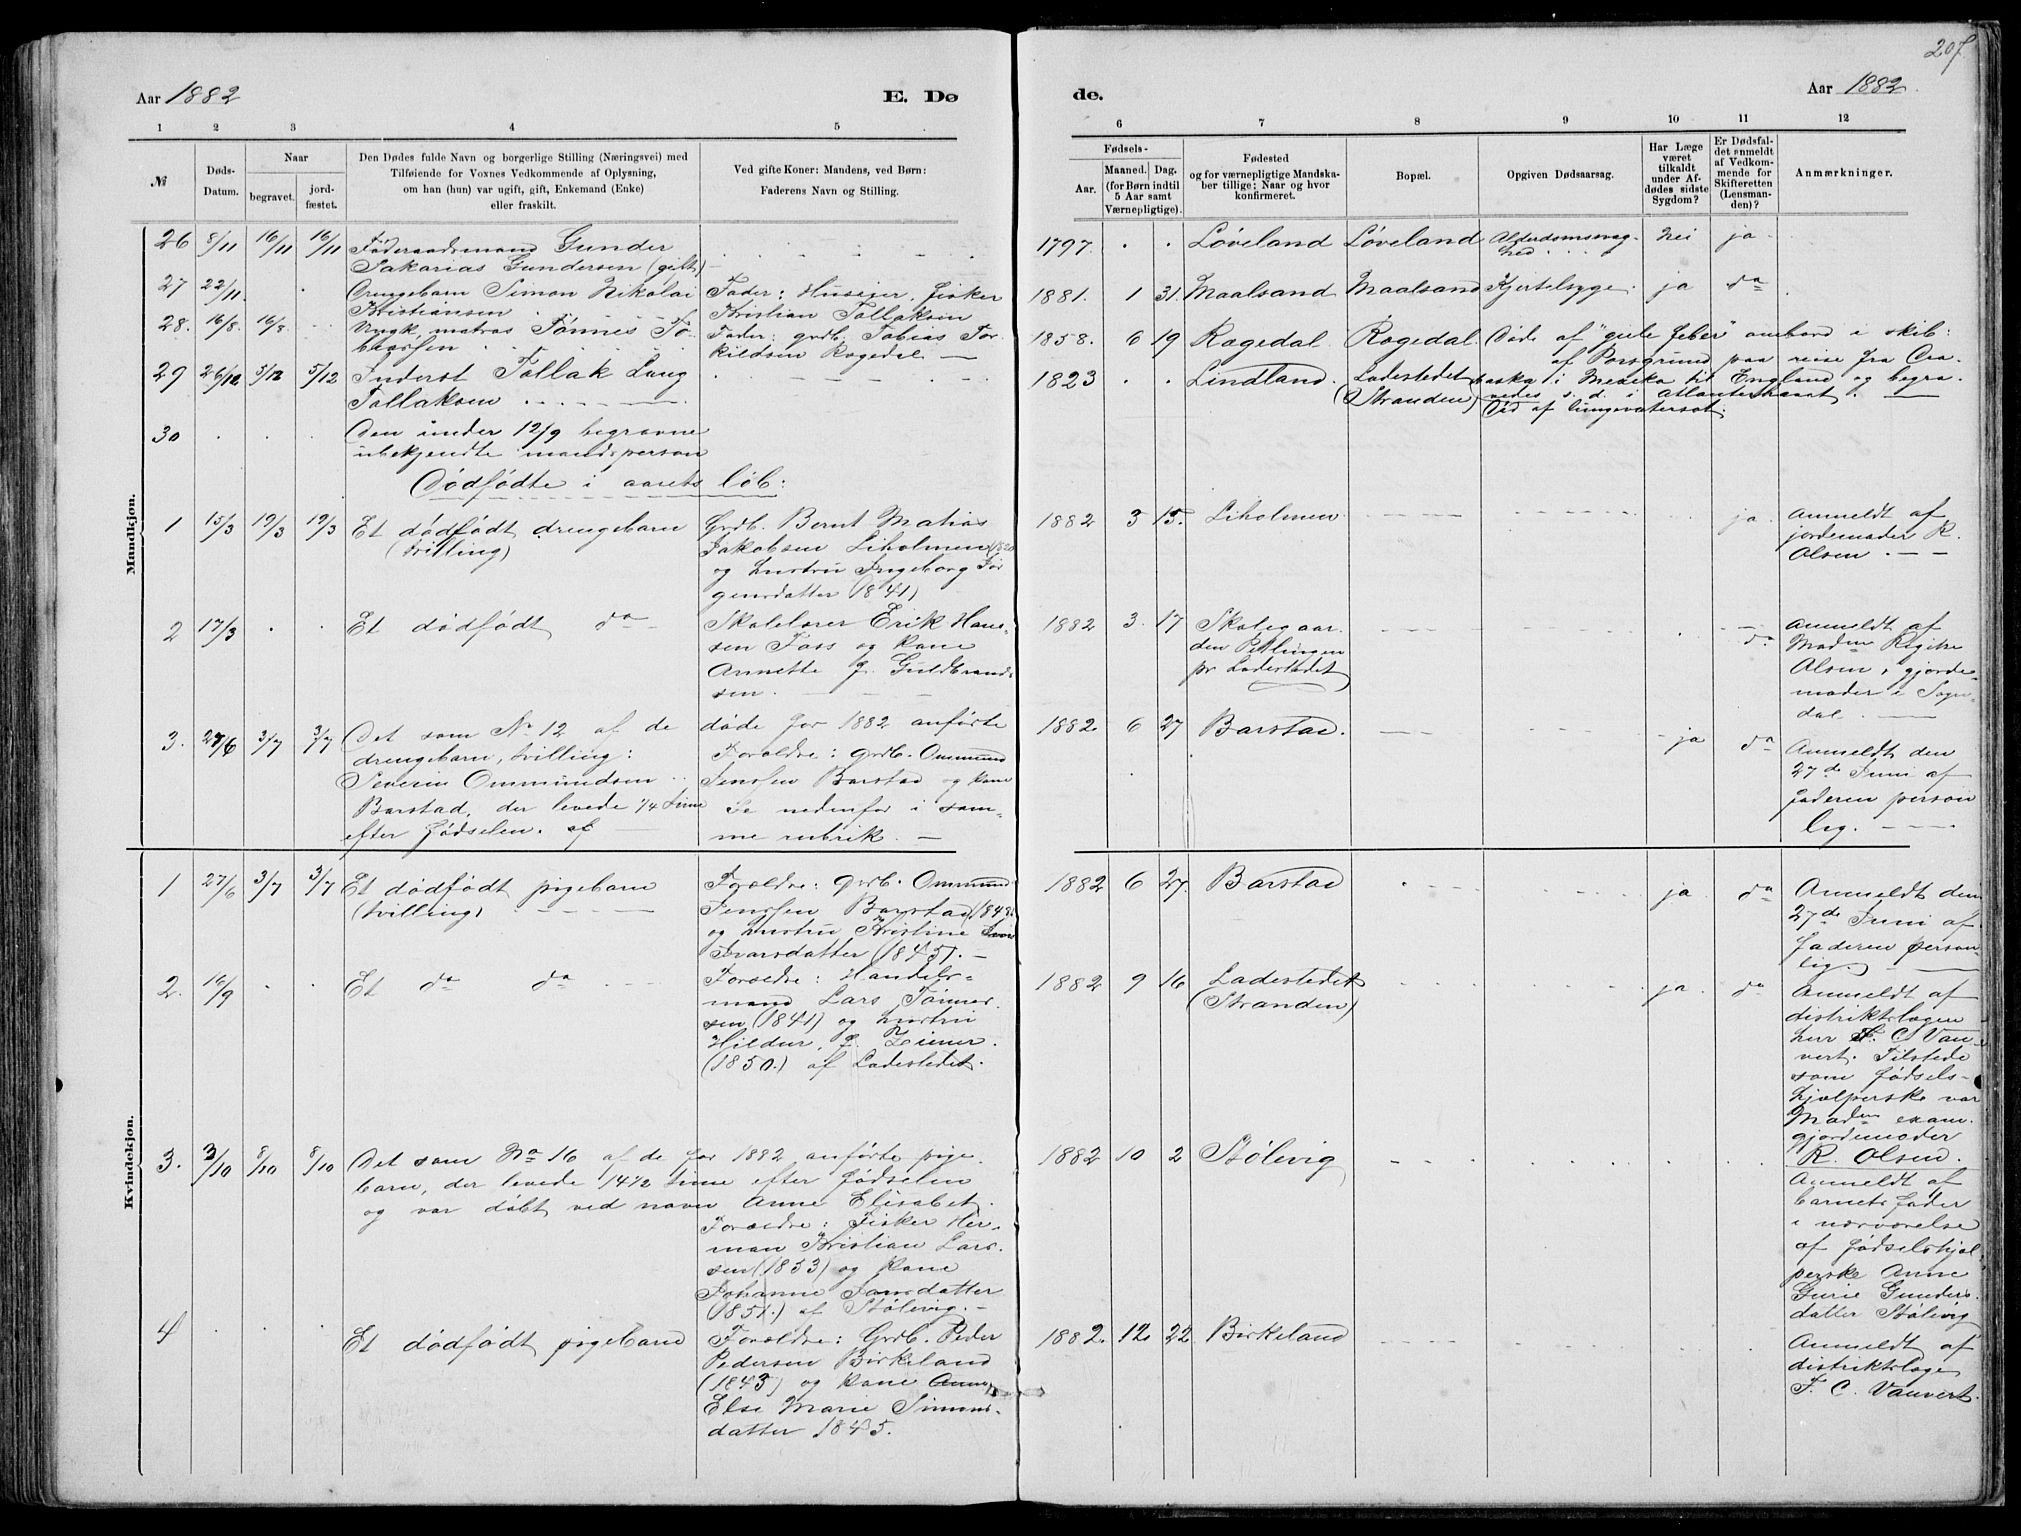 207
Aar 1882
E. Dø
de.
Aar 1882.
1 2 3 4 5 6 7 8 9 10 11 12
№
Døds-
Datum.
Naar
begravet.
jord-
fæstet.
Den Dødes fulde Navn og borgerlige Stilling (Næringsvei) med
Tilføiende for Voxnes Vedkommende af Oplysning,
om han (hun) var ugift, gift, Enkemand (Enke)
eller fraskilt.
Ved gifte Koner: Mandens, ved Børn:
Faderens Navn og Stilling.
Fødsels-
Aar.
Maaned. Dag.
(for Børn indtil
5 Aar samt
Værnepligtige).
Fødested
og for værnepligtige Mandska-
ber tillige: Naar og hvor
konfirmeret.
Bopæl.
Opgiven Dødsaarsag.
Har Læge
været
tilkaldt
under Af-
dødes sidste
Sygdom?
Er Dødsfal-
det anmeldt
af Vedkom-
mende for
Skifteretten
(Lensman-
den)?
Anmærkninger.
Mandkjøn.
26 8/11 16/11 16/11 Føderaadsmand Gunder
Sakarias Gundersen (gift)
1797. Løveland Løveland Alderdomssvag-
hed nei ja
27 22/11 Drengebarn Simon Nikolai
Kristiansen
Fader: Huseier, fisker
Kristian Tollaksen
1881. 1 31. Maalsand Maalsand Kjertelsyge. ja do
28. 16/8. 16/8. Ungk. matros Tønnes To-
biassen
Fader: grdb. Tobias Tor-
kildsen Rægedal
1858. 6 19 Rægedal Rægedal. Døde af "gule feber" ombord i skib:
af Porsgrund paa reise fra Oa-
xaska i Mexika til England og begra-
vedes s. d. i atlanterhavet.
29 26/12 3/12 5/12 Inderst Tollak Lang
Tollaksen
1823 Lindland. Ladestedet
(Stranden) Død af lungevatersot.
30 Den under 12/9 begravne
ubekjendte mandsperson
Dødfødte i aarets løb:
1 15/3 19/3 19/3 Et dødfødt drengebarn
(tvilling)
Grdb. Bernt Matias
Jakobsen Liholmen
og hustru Ingeborg Jør-
gensdatter (1841)
1882 3 15. Liholmen ja. Anmeldt af
jordemoder R.
Olsen
2 17/3 Et dødfødt do
Skolelærer Erik Han-
sen Foss og kone
Annette f. Guldbrand-
sen.
1882 3. 17 Skolegaar-
den Pedlingen
pr. Ladestedet do Anmeldt af
Madm Regine
Olsen, gjorde-
moder i Sogn-
dal.
3. 27/6 3/7 3/7 Det som No 12 af de døde for 1882 anførte
drengebarn, tvilling:
Severin Ommundsen
Barstad, der levede 1/4 time
efter fødselen. af
Forældre: grdb. Ommund
Jenssen Barstad og kone
Se nedenfor i sam-
me rubrik.
1882. 6 27 Barstad. ja do Anmeldt den
27de Juni af
faderen person-
lig.
Kvindekjøn.
1 27/6 3/7 3/7 Et dødfødt pigebarn
(tvilling)
Forældre: grdb. Ommund
Jenssen Barstad (1848)
og hustru Kristine
Ivarsdatter (1845).
1882 6 27. Barstad ja do Anmeldt den
27de Juni af
faderen person-
lig.
2. 16/9 Et do do
Forældre: Handels-
mand Lars Tønnes-
sen (1841) og hustru
Hildur, f. Ziener.
(1850.) af Ladestedet.
1882 9 16 Ladestedet
(Stranden) ja. do Anmeldt af
distriktslægen
herr F. C. Vau-
vert. Tilstede
som fødsels-
hjælperske var
Madm exam.
gjordemoder
R. Olsen.
3. 3/10 8/10 8/10 Det som No 16 af de for 1882 anførte pige-
barn, der levede 14 1/2 time efter fødselen
og var døbt ved navn Anne Elisabet.
Forældre: Fisker Her-
man Kristian Lars-
sen (1853) og kone
Johanne Jansdatter
(1851.) af Stølevig.
1882 10 2 Stølevig Anmeldt af
barnets fader
i nærværelse
af fødselshjæl-
perske Anne
Gurie Gunders-
datter Stølevig
4 Et dødfødt pigebarn
Forældre: Grdb. Peder
Pedersen Birkeland
(1843) og kone
Else Marie Simons-
datter 1845.
1882. 12. 22 Birkeland Anmeldt af
distriktslæge
F. C. Vauvert.